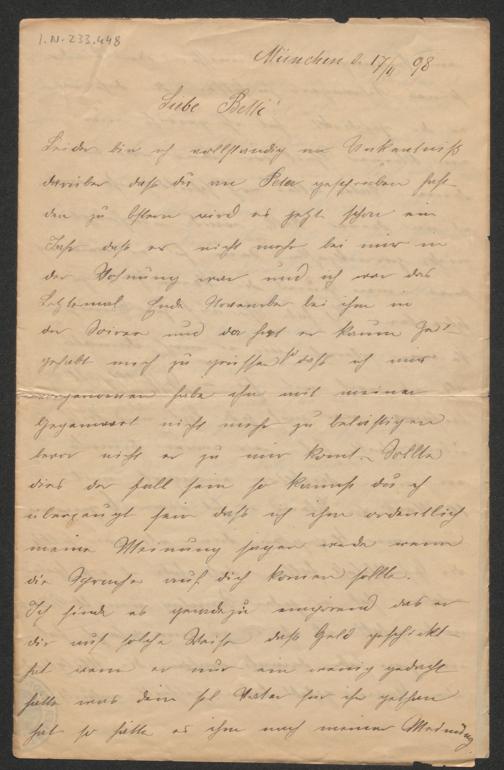 I.N. 233.448
München d. 17/II 98
Liebe Betti!
Leider bin ich vollständig in Unkentniß
darüber daß du an Peter geschrieben hast
den zu Ostern wird es jetzt schon ein
Jahr daß er nicht mehr bei mir in
der Wohnung war und ich war das
Letztemal Ende November bei ihm in
der Soiree und da hat er kaum Zeit
gehabt mich zu grüssen daß ich mir
vorgenommen habe ihn mit meiner
Gegenwart nicht mehr zu belästigen
bevor nicht er zu mir komt. Sollte
dies der fall sein so kannst du
überzeugt sein daß ich ihm ordentlich
meine Meinung sagen werde wenn
die Sprache auf dich komen sollte.
Ich finde es geradezu empörend das er
dir auf solche Weise daß Geld geschickt
hat wenn er nur ein wenig gedacht
hätte was dein sel Vater für ihn gethan
hat so hätte er ihm nach meiner Meinung